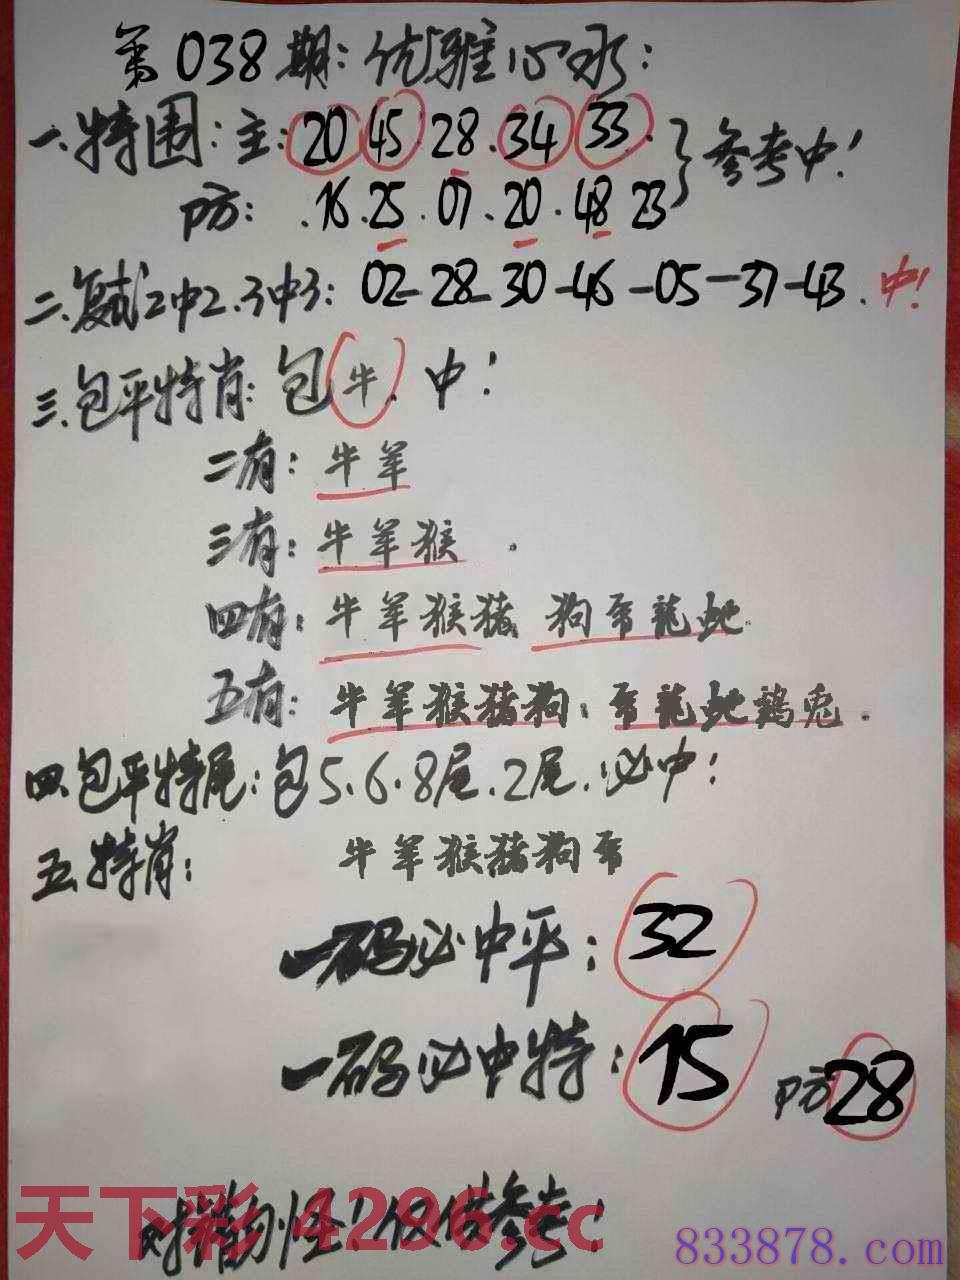 第038期:优雅心水:
一.特围:主:20 45 28.34 33.}参考中!
防:.16.25.07.20.48 23
二.复式2中2.3中3: 02-28-30-46-05-37-43.中!
三.包平特肖:包牛.中!
二有:牛羊
三有:牛羊猴.
四有:牛羊猴猪 狗馬龍蛇
五有:牛羊猴猪狗:馬龍蛇鷄兔.
四.包平特尾:包5.6.8尾.2尾.必中:
五.特肖: 牛羊猴猪狗馬
一码必中平:32
一码必中特:15 防28
对错勿怪!仅供参考!
天下彩 4296.cc
833878.com